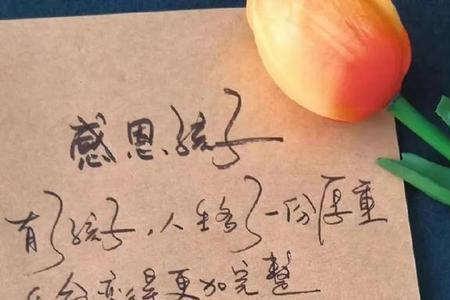 感恩孩子
有了孩子，人生多了一份厚重
变得更加完整